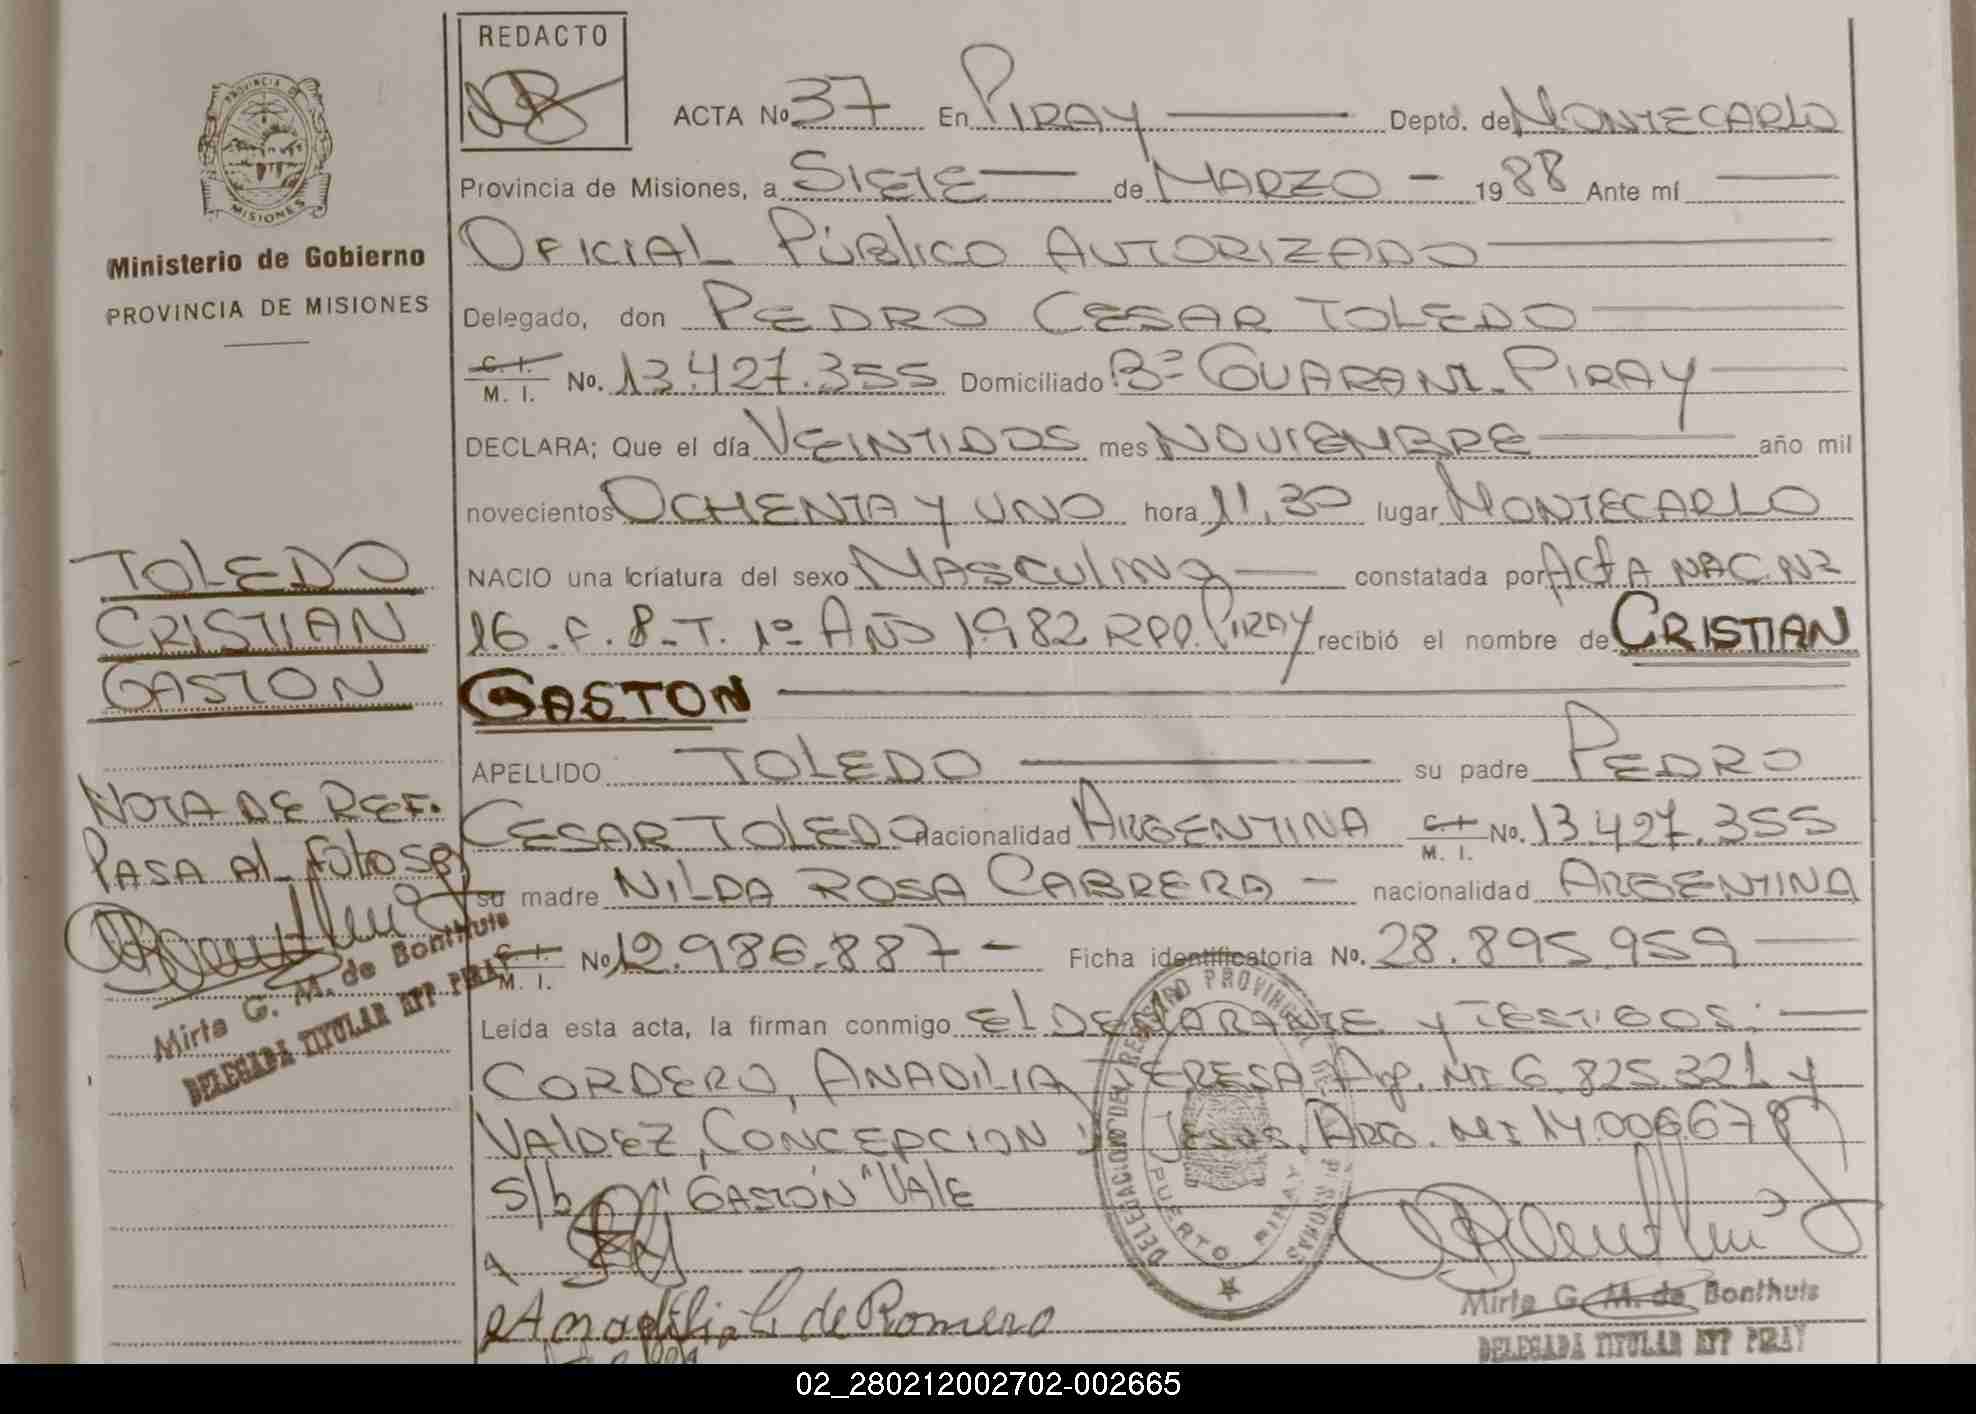 REDACTO
PROVINCIA DE
MISIONES
Ministerio de Gobierno
PROVINCIA DE MISIONES
ACTA No 37 En PIRAY Depto. de MONTECARLO
Provincia de Misiones, a SIETE de MARZO - 1988 Ante mí
OFICIAL PÚBLICO AUTORIZADO
Delegado, don PEDRO CESAR TOLEDO
C. I.
M. I. No. 13.427.355 Domiciliado Bº GUARANI - PIRAY
DECLARA; Que el día VEINTIDOS mes NOVIEMBRE año mil
novecientos OCHENTA Y UNO hora 11,30 lugar MONTECARLO
NACIO una criatura del sexo MASCULINO constatada por ACTA NAC Nº
16 - F. 8 - T. 1º AÑO 1982 RPP. PIRAY recibió el nombre de CRISTIAN
GASTON
APELLIDO TOLEDO su padre PEDRO
CESAR TOLEDO nacionalidad ARGENTINA C.I. M. I. No. 13.427.355
su madre NILDA ROSA CABRERA - nacionalidad ARGENTINA
C.I. M. I. No 12.986.887 - Ficha identificatoria No. 28.895.959
Leída esta acta, la firman conmigo EL DECLARANTE Y TESTIGOS:
CORDERO, ANADILIA TERESA Arg. MI 6.825.321 y
VALDEZ, CONCEPCION JESUS, ARG. MI 14.006678
S/b "GASTON" VALE
Anadilia C de Romero
TOLEDO
CRISTIAN
GASTON
NOTA DE REF.
PASA AL FOLIO 58
Mirta G. M. de Bonthuis
DELEGADA TITULAR RPP PIRAY
DELEGACION DEL REGISTRO PROVINCIAL DE LAS PERSONAS
PUERTO PIRAY
Mirta G. M. de Bonthuis
DELEGADA TITULAR RPP PIRAY
02_280212002702-002665